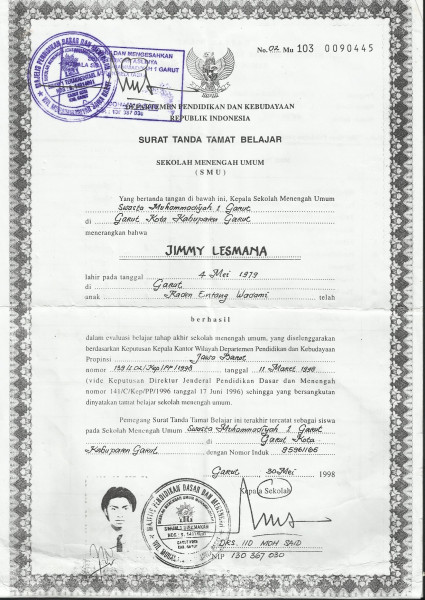 No. 02 Mu 103 0090445
DAN MENGESAHKAN
DEPARTEMEN PENDIDIKAN DAN KEBUDAYAAN
REPUBLIK INDONESIA
SURAT TANDA TAMAT BELAJAR
SEKOLAH MENENGAH UMUM
( SMU )
Yang bertanda tangan di bawah ini, Kepala Sekolah Menengah Umum
Swasta Muhammadiyah 1 Garut
di Garut Kota Kabupaten Garut
menerangkan bahwa
JIMMY LESMANA
lahir pada tanggal 4 Mei 1979
di Garut
anak Raden Entang Wadami telah
berhasil
dalam evaluasi belajar tahap akhir sekolah menengah umum, yang diselenggarakan
berdasarkan Keputusan Kepala Kantor Wilayah Departemen Pendidikan dan Kebudayaan
Propinsi Jawa Barat
nomor tanggal 11 Maret 1998
(vide Keputusan Direktur Jenderal Pendidikan Dasar dan Menengah
nomor 141/C/Kep/PP/1996 tanggal 17 Juni 1996) sehingga yang bersangkutan
dinyatakan tamat belajar sekolah menengah umum.
Pemegang Surat Tanda Tamat Belajar ini terakhir tercatat sebagai siswa
pada Sekolah Menengah Umum Swasta Muhammadiyah 1 Garut
di Garut Kota
Kabupaten Garut dengan Nomor Induk
Garut 30 Mei 1998
Kepala Sekolah
MAJELIS PENDIDIKAN DASAR DAN MENENGAH
DRS. IID MOH SAID
NIP 130 367 030